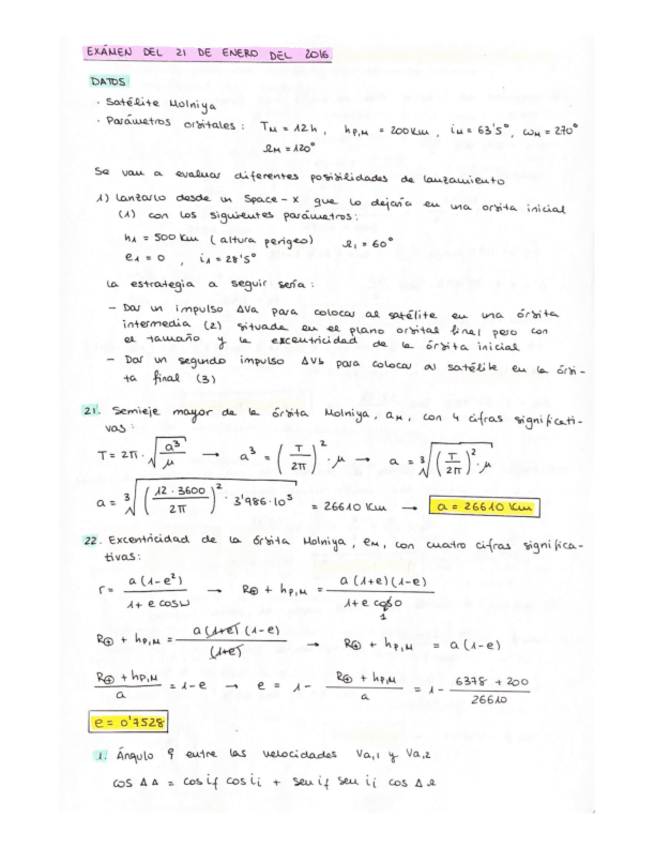 EXÁMEN DEL 21 DE ENERO DEL 2016
DATOS
· Satélite Molniya
· Parámetros orbitales : T_M = 12h , h_P,M = 200 Km , i_M = 63'5° , ω_M = 270°
Ω_M = 120°
Se van a evaluar diferentes posibilidades de lanzamiento
1) lanzarlo desde un Space-X que lo dejaría en una orbita inicial
(1) con los siguientes parámetros:
h_1 = 500 Km ( altura perigeo) Ω_1 = 60°
e_1 = 0 , i_1 = 28'5°
La estrategia a seguir sería :
- Dar un impulso ΔVa para colocar al satélite en una órbita
intermedia (2) situada en el plano orbital final pero con
el tamaño y la excentricidad de la órbita inicial
- Dar un segundo impulso ΔVb para colocar al satélite en la órbi-
ta final (3)
21. Semieje mayor de la órbita Molniya, a_M, con 4 cifras significati-
vas :
T = 2π · √(a³/μ) → a³ = (T/2π)² · μ → a = ∛((T/2π)² · μ)
a = ∛((12·3600/2π)² · 3'986·10⁵) = 26610 Km → a = 26610 Km
22. Excentricidad de la órbita Molniya, e_M, con cuatro cifras significa-
tivas:
r = a(1-e²)/(1+e cosω) → R⊕ + h_P,M = a(1+e)(1-e)/(1+e cos0)
1
R⊕ + h_P,M = a(1+e)(1-e)/(1+e) → R⊕ + h_P,M = a(1-e)
(R⊕ + h_P,M)/a = 1-e → e = 1 - (R⊕ + h_P,M)/a = 1 - (6378 + 200)/26610
e = 0'7528
1. Ángulo φ entre las velocidades Va,1 y Va,2
cos ΔΔ = cos if cos ii + sen if sen ii cos ΔΩ